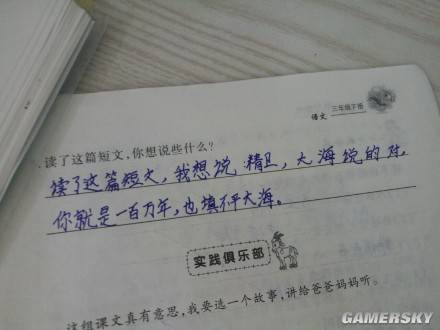 语文 三年级下册
.读了这篇短文,你想说些什么?
读了这篇短文,我想说:精卫,大海说的对,
你就是一百万年,也填不平大海。
实践俱乐部
这组课文真有意思,我要选一个故事,讲给爸爸妈妈听。
GAMERSKY